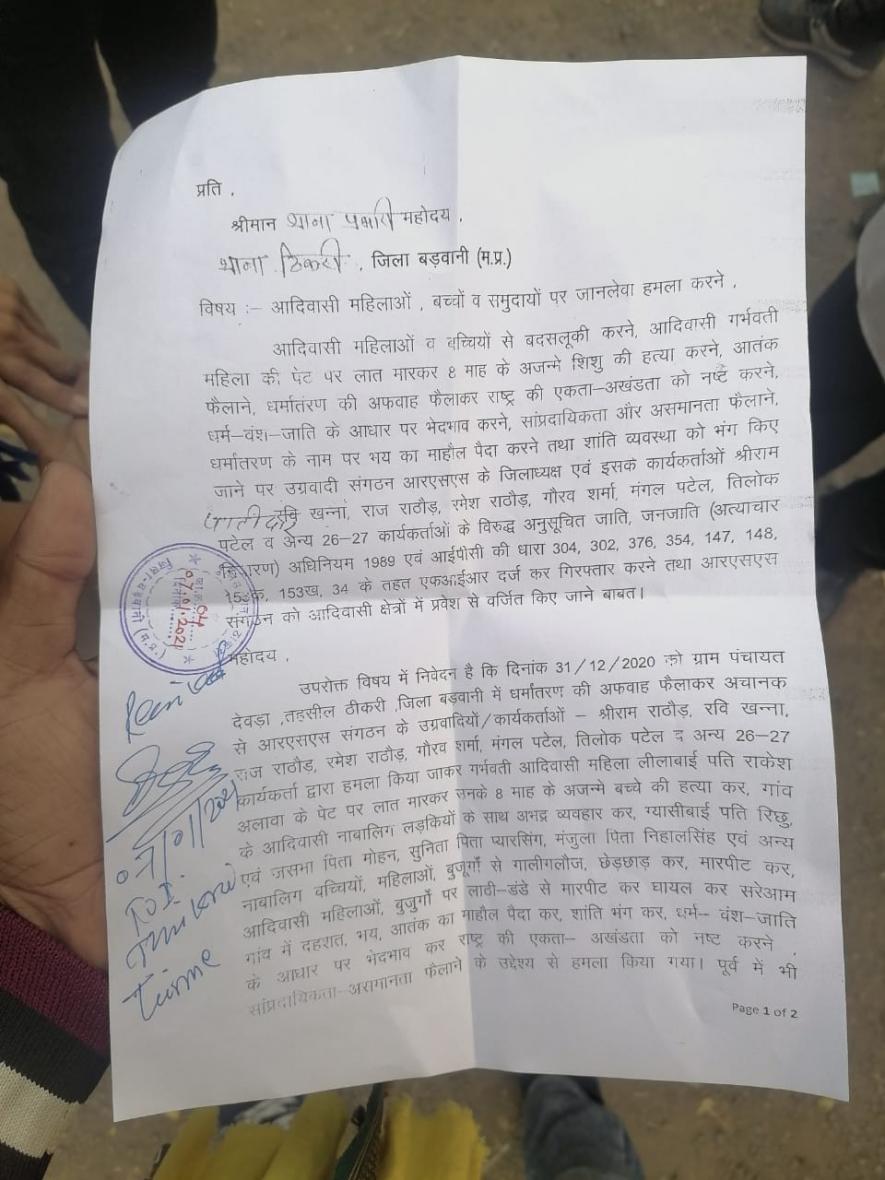 प्रति ,
श्रीमान थाना प्रभारी महोदय ,
थाना ठिकरी , जिला बड़वानी (म.प्र.)
विषय :– आदिवासी महिलाओं , बच्चों व समुदायों पर जानलेवा हमला करने ,
आदिवासी महिलाओं व बच्चियों से बदसलूकी करने, आदिवासी गर्भवती
महिला की पेट पर लात मारकर 8 माह के अजन्मे शिशु की हत्या करने, आतंक
फैलाने, धर्मातंरण की अफवाह फैलाकर राष्ट्र की एकता–अखंडता को नष्ट करने,
धर्म–वंश–जाति के आधार पर भेदभाव करने, सांप्रदायिकता और असमानता फैलाने,
धर्मातरण के नाम पर भय का माहौल पैदा करने तथा शांति व्यवस्था को भंग किए
जाने पर उग्रवादी संगठन आरएसएस के जिलाध्यक्ष एवं इसके कार्यकर्ताओं श्रीराम
रवि खन्ना, राज राठौड़, रमेश राठौड़, गौरव शर्मा, मंगल पटेल, तिलोक
पटेल व अन्य 26-27 कार्यकर्ताओं के विरुद्ध अनुसूचित जाति, जनजाति (अत्याचार
निवारण) अधिनियम 1989 एवं आईपीसी की धारा 304, 302, 376, 354, 147, 148,
153क, 153ख, 34 के तहत एफआईआर दर्ज कर गिरफ्तार करने तथा आरएसएस
संगठन को आदिवासी क्षेत्रों में प्रवेश से वर्जित किए जाने बाबत।
महोदय ,
उपरोक्त विषय में निवेदन है कि दिनांक 31/12/2020 को ग्राम पंचायत
देवड़ा ,तहसील ठीकरी ,जिला बड़वानी में धर्मातरण की अफवाह फैलाकर अचानक
से आरएसएस संगठन के उग्रवादियों/कार्यकर्ताओं – श्रीराम राठौड़, रवि खन्ना,
राज राठौड़, रमेश राठौड़, गौरव शर्मा, मंगल पटेल, तिलोक पटेल व अन्य 26-27
कार्यकर्ता द्वारा हमला किया जाकर गर्भवती आदिवासी महिला लीलाबाई पति राकेश
अलावा के पेट पर लात मारकर उनके 8 माह के अजन्मे बच्चे की हत्या कर, गांव
के आदिवासी नाबालिग लड़कियों के साथ अभद्र व्यवहार कर, ग्यासीबाई पति रिछु,
एवं जसभा पिता मोहन, सुनिता पिता प्यारसिंग, मंजुला पिता निहालसिंह एवं अन्य
नाबालिग बच्चियों, महिलाओं, बुजूर्गों से गालीगलौज, छेड़छाड़ कर, मारपीट कर,
आदिवासी महिलाओं, बुजुर्गों पर लाठी-डंडे से मारपीट कर घायल कर सरेआम
गांव में दहशत, भय, आतंक का माहौल पैदा कर, शांति भंग कर, धर्म– वंश-जाति
के आधार पर भेदभाव कर राष्ट्र की एकता– अखंडता को नष्ट करने
सांप्रदायिकता–असमानता फैलाने के उद्देश्य से हमला किया गया। पूर्व में भी
Page 1 of 2
07/01/2021